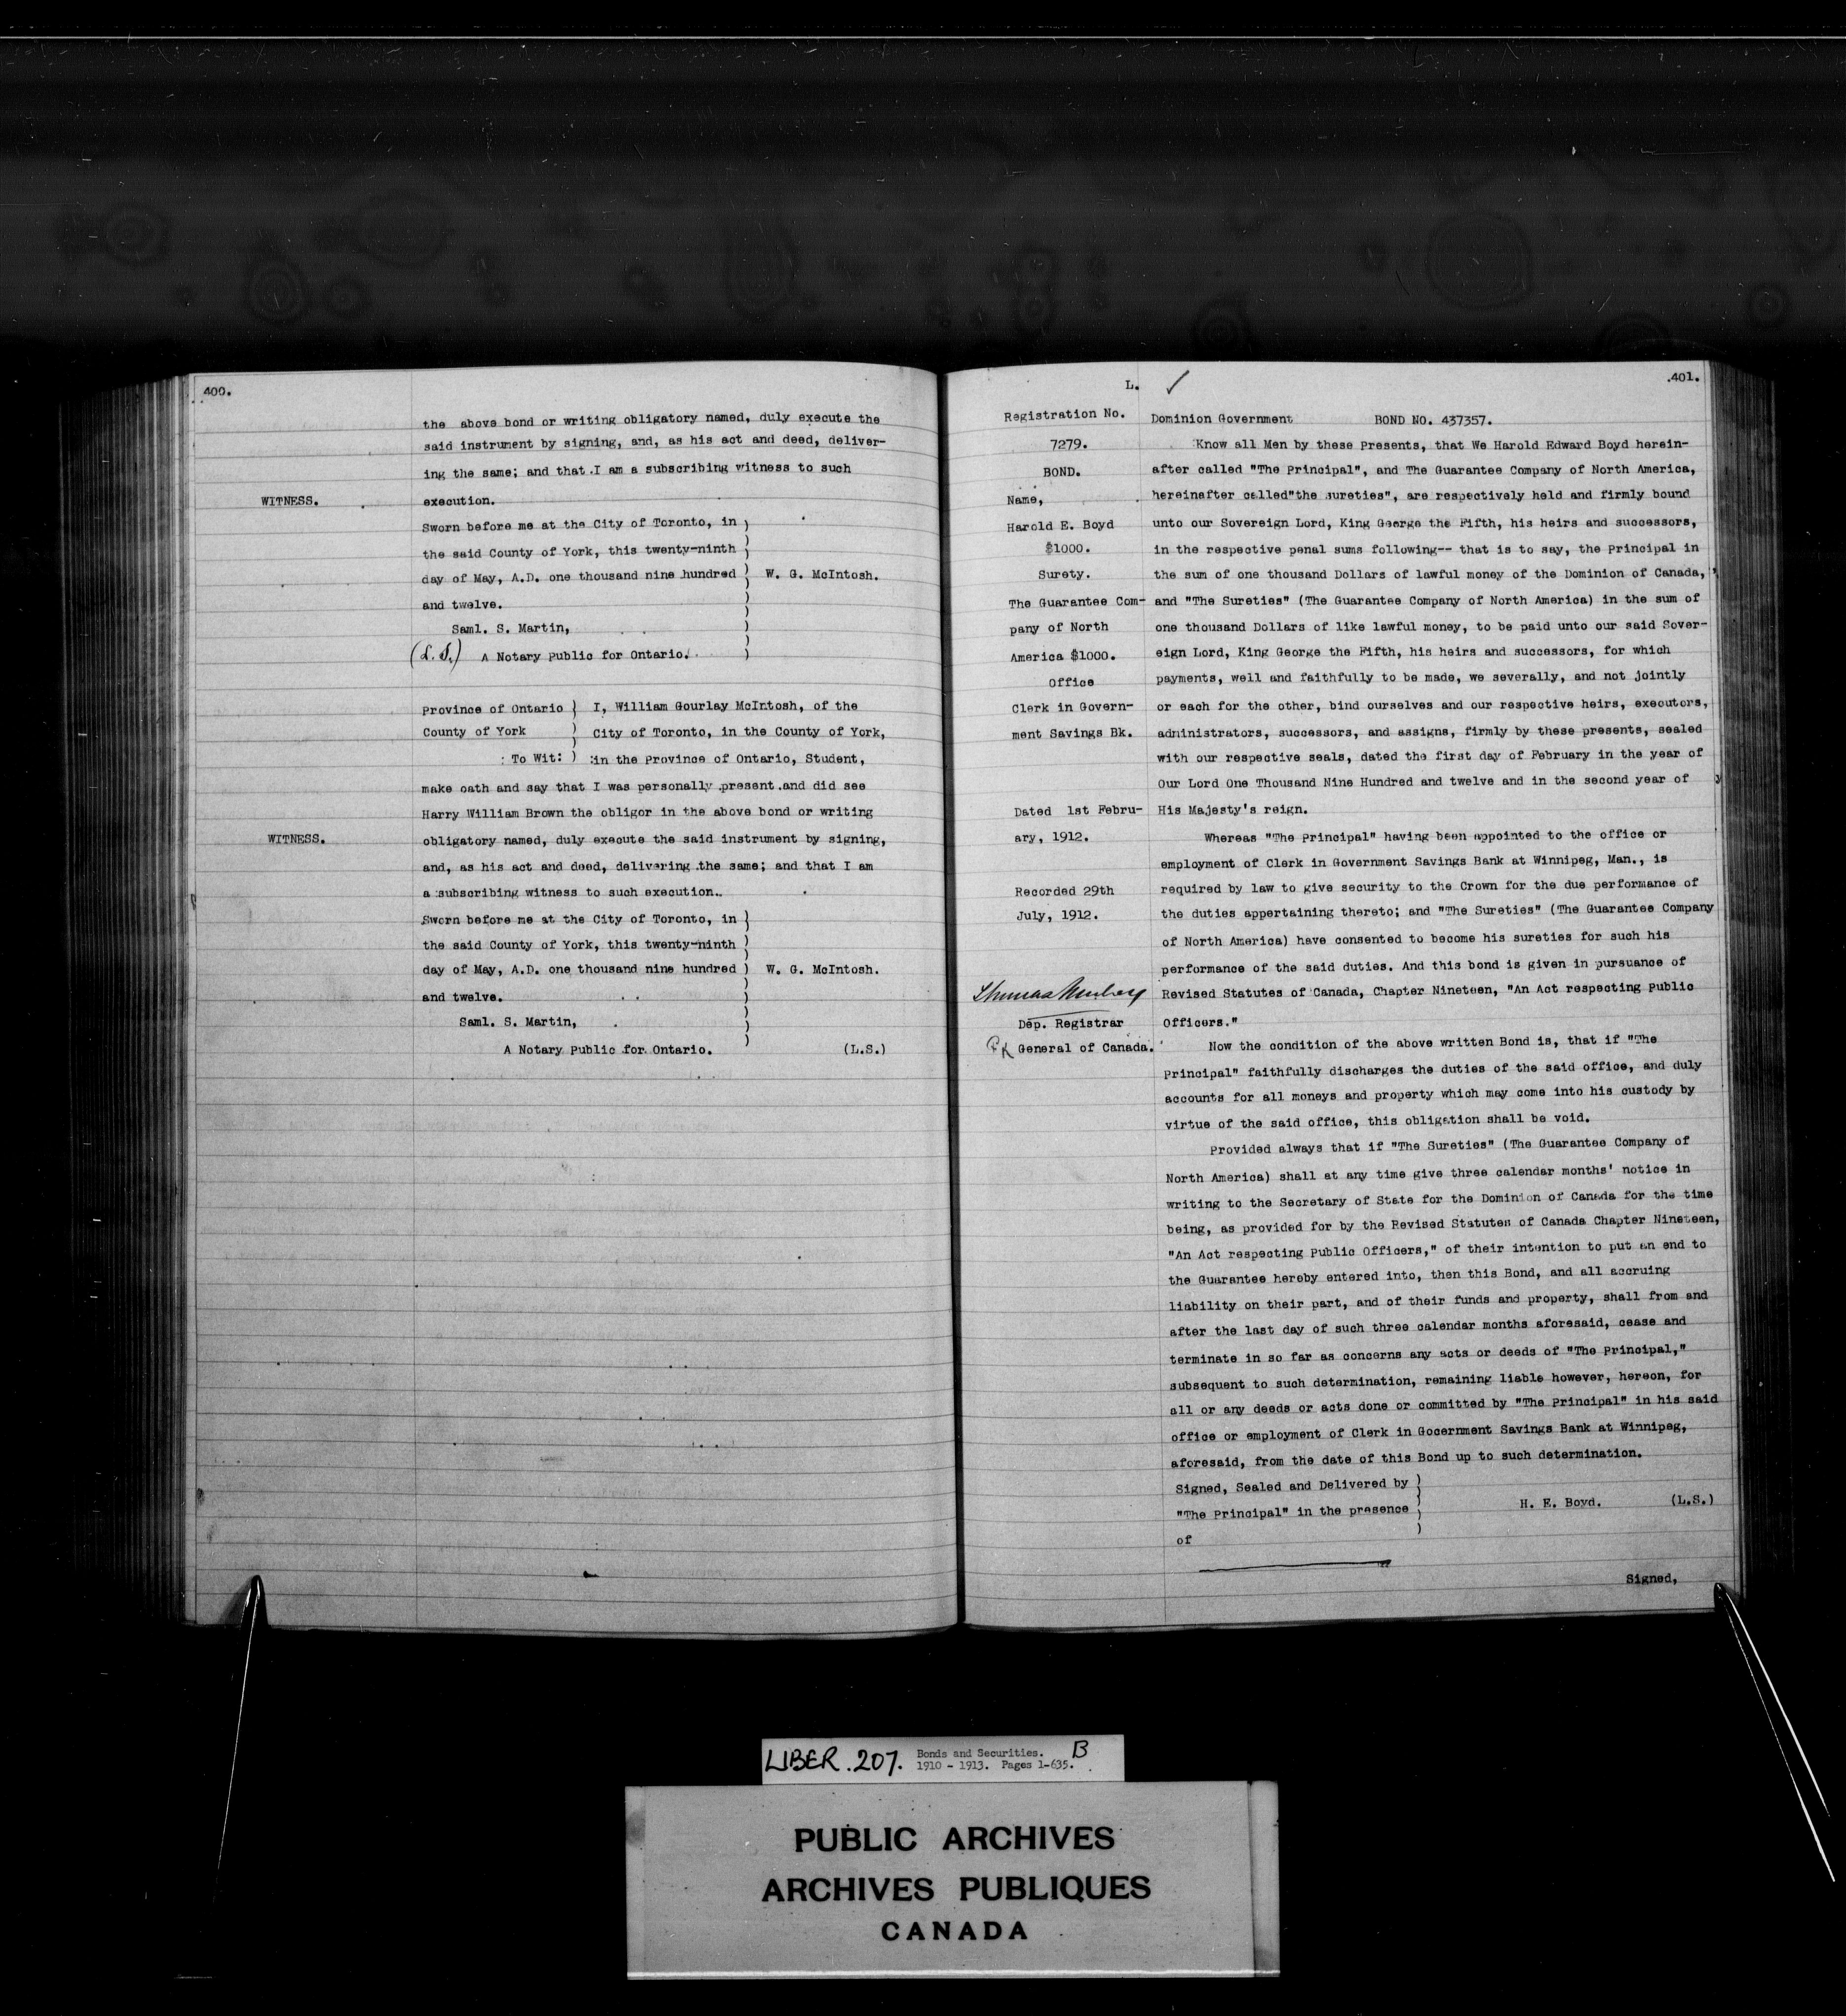 400.
the above bond or writing obligatory named, duly execute the
said instrument by signing, and, as his act and deed, deliver-
ing the same; and that I am a subscribing witness to such
WITNESS. execution.
Sworn before me at the City of Toronto, in )
the said County of York, this twenty-ninth )
day of May, A.D. one thousand nine hundred ) W. G. McIntosh.
and twelve. )
Saml. S. Martin, )
(L.S.) A Notary Public for Ontario. )
Province of Ontario ) I, William Gourlay McIntosh, of the
County of York ) City of Toronto, in the County of York,
To Wit: ) in the Province of Ontario, Student,
make oath and say that I was personally present and did see
Harry William Brown the obligor in the above bond or writing
WITNESS. obligatory named, duly execute the said instrument by signing,
and, as his act and deed, delivering the same; and that I am
a subscribing witness to such execution.
Sworn before me at the City of Toronto, in )
the said County of York, this twenty-ninth )
day of May, A.D. one thousand nine hundred ) W. G. McIntosh.
and twelve. )
Saml. S. Martin, )
A Notary Public for Ontario. ) (L.S.)
L. ✓ 401.
Registration No.
7279.
BOND.
Name,
Harold E. Boyd
$1000.
Surety.
The Guarantee Com-
pany of North
America $1000.
Office
Clerk in Govern-
ment Savings Bk.
Dated 1st Febru-
ary, 1912.
Recorded 29th
July, 1912.
Dep. Registrar
General of Canada.
Dominion Government BOND NO. 437357.
Know all Men by these Presents, that We Harold Edward Boyd herein-
after called "The Principal", and The Guarantee Company of North America,
hereinafter called"the sureties", are respectively held and firmly bound
unto our Sovereign Lord, King George the Fifth, his heirs and successors,
in the respective penal sums following-- that is to say, the Principal in
the sum of one thousand Dollars of lawful money of the Dominion of Canada,
and "The Sureties" (The Guarantee Company of North America) in the sum of
one thousand Dollars of like lawful money, to be paid unto our said Sover-
eign Lord, King George the Fifth, his heirs and successors, for which
payments, well and faithfully to be made, we severally, and not jointly
or each for the other, bind ourselves and our respective heirs, executors,
administrators, successors, and assigns, firmly by these presents, sealed
with our respective seals, dated the first day of February in the year of
Our Lord One Thousand Nine Hundred and twelve and in the second year of
His Majesty's reign.
Whereas "The Principal" having been appointed to the office or
employment of Clerk in Government Savings Bank at Winnipeg, Man., is
required by law to give security to the Crown for the due performance of
the duties appertaining thereto; and "The Sureties" (The Guarantee Company
of North America) have consented to become his sureties for such his
performance of the said duties. And this bond is given in pursuance of
Revised Statutes of Canada, Chapter Nineteen, "An Act respecting Public
Officers."
Now the condition of the above written Bond is, that if "The
Principal" faithfully discharges the duties of the said office, and duly
accounts for all moneys and property which may come into his custody by
virtue of the said office, this obligation shall be void.
Provided always that if "The Sureties" (The Guarantee Company of
North America) shall at any time give three calendar months' notice in
writing to the Secretary of State for the Dominion of Canada for the time
being, as provided for by the Revised Statutes of Canada Chapter Nineteen,
"An Act respecting Public Officers," of their intention to put an end to
the Guarantee hereby entered into, then this Bond, and all accruing
liability on their part, and of their funds and property, shall from and
after the last day of such three calendar months aforesaid, cease and
terminate in so far as concerns any acts or deeds of "The Principal,"
subsequent to such determination, remaining liable however, hereon, for
all or any deeds or acts done or committed by "The Principal" in his said
office or employment of Clerk in Gocernment Savings Bank at Winnipeg,
aforesaid, from the date of this Bond up to such determination.
Signed, Sealed and Delivered by )
"The Principal" in the presence ) H. E. Boyd. (L.S.)
of )
Signed,
LIBER. 207. Bonds and Securities. B
1910 - 1913. Pages 1-635.
PUBLIC ARCHIVES
ARCHIVES PUBLIQUES
CANADA